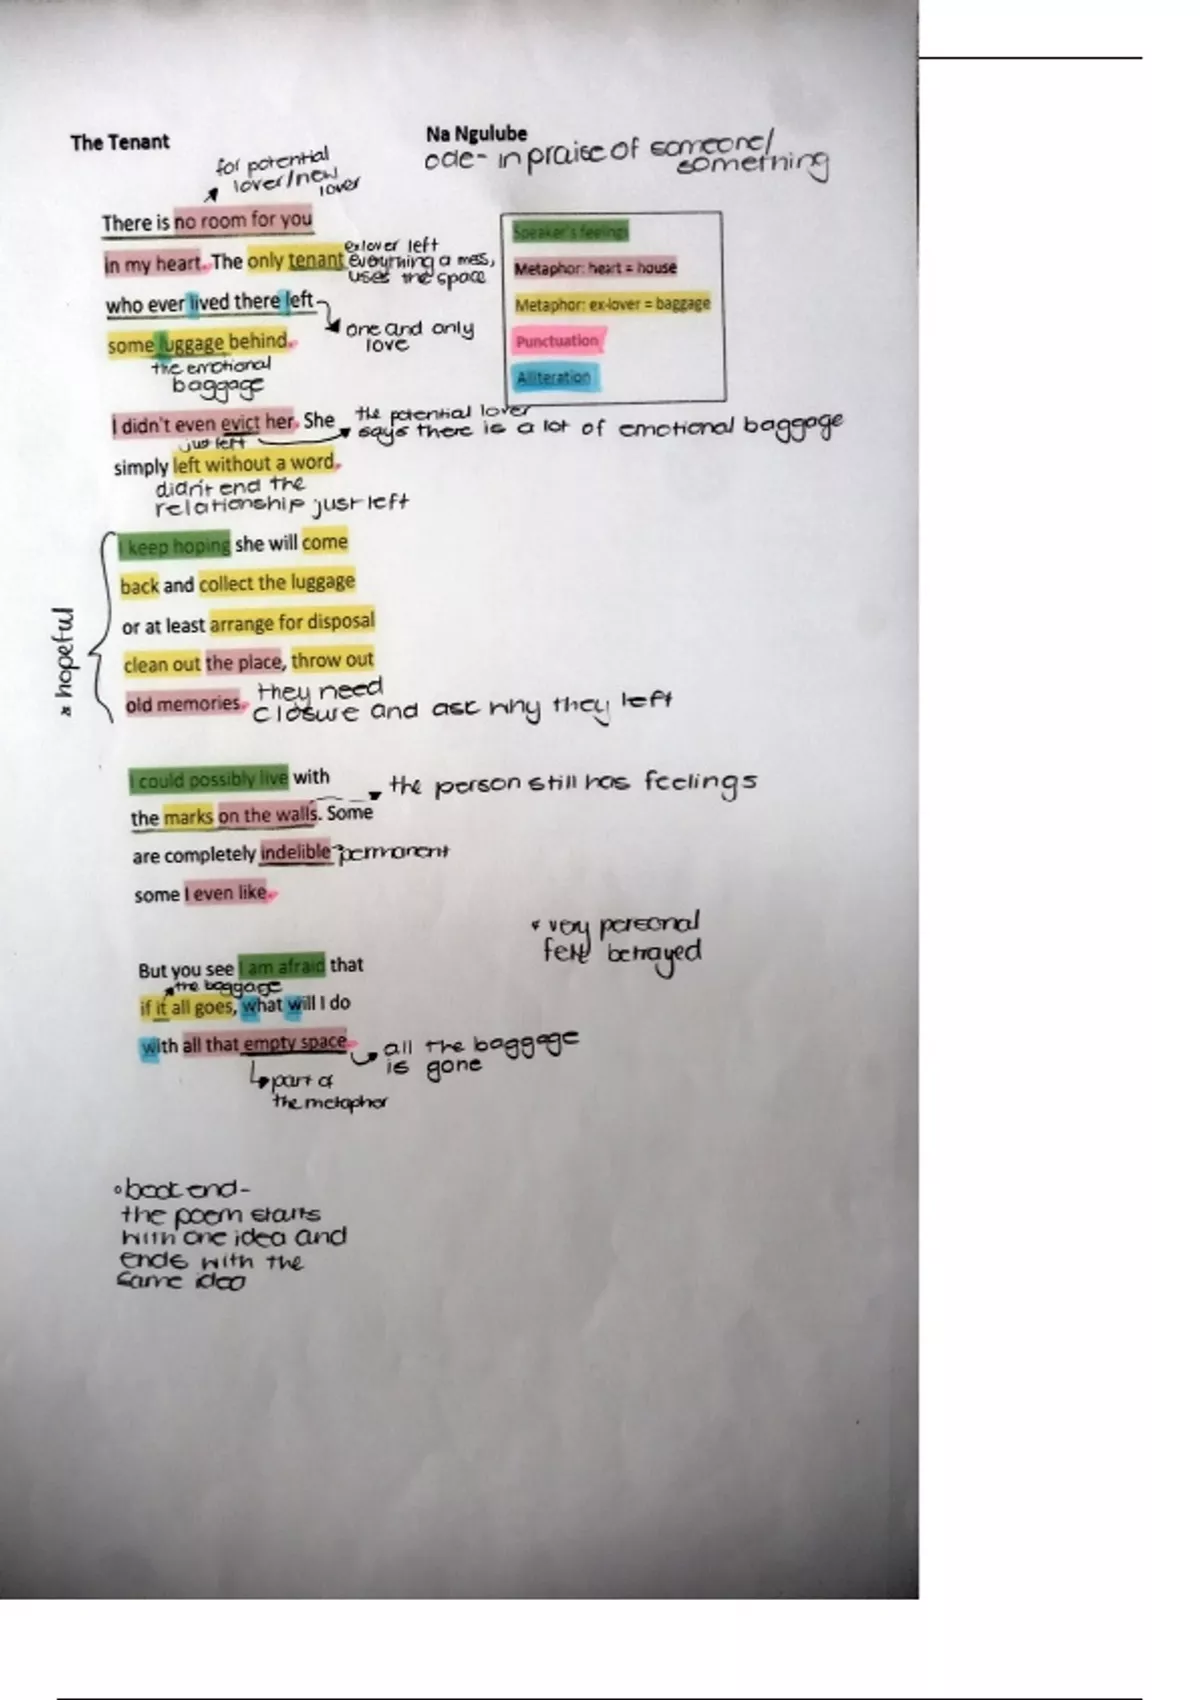 The Tenant
Na Ngulube
ode- in praise of someone/
something
for potential
lover/new
lover
There is no room for you
in my heart. The only tenant
exlover left
everything a mess,
uses the space
who ever lived there left
one and only
love
some luggage behind.
the emotional
baggage
Speaker's feelings
Metaphor: heart = house
Metaphor: ex-lover = baggage
Punctuation
Alliteration
I didn't even evict her. She
just left
the potential lover
says there is a lot of emotional baggage
simply left without a word.
didn't end the
relationship just left
* hopeful
I keep hoping she will come
back and collect the luggage
or at least arrange for disposal
clean out the place, throw out
old memories.
they need
closure and ask why they left
I could possibly live with
the person still has feelings
the marks on the walls. Some
are completely indelible permanent
some I even like.
* very personal
felt betrayed
But you see I am afraid that
the baggage
if it all goes, what will I do
with all that empty space.
all the baggage
is gone
part of
the metaphor
book end-
the poem starts
with one idea and
ends with the
same idea